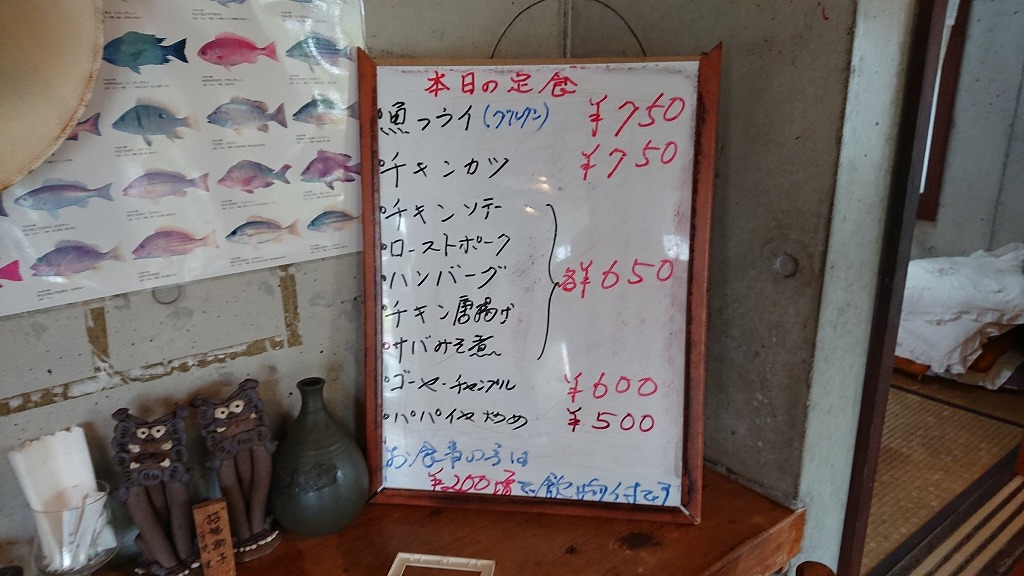 本日の定食
°魚フライ(グルクン) ¥750
°チキンカツ ¥750
°チキンソテー
°ローストポーク
°ハンバーグ 各¥650
°チキン唐揚げ
°サバみそ煮
°ゴーヤーチャンプル ¥600
°パパイヤ炒め ¥500
お食事の方は
¥200増で飲物付です